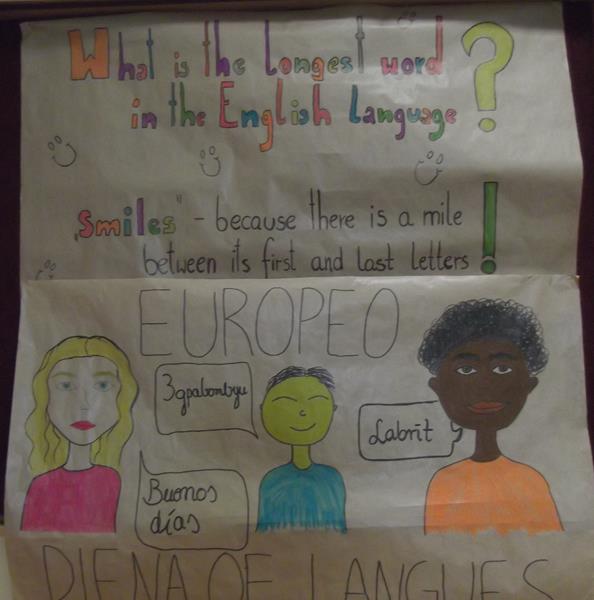 What is the longest word
in the English language ?
„Smiles" - because there is a mile
between its first and last letters !
EUROPEO
Здравствуй
Labrīt
Buenos
días
DIENA OF LANGUES